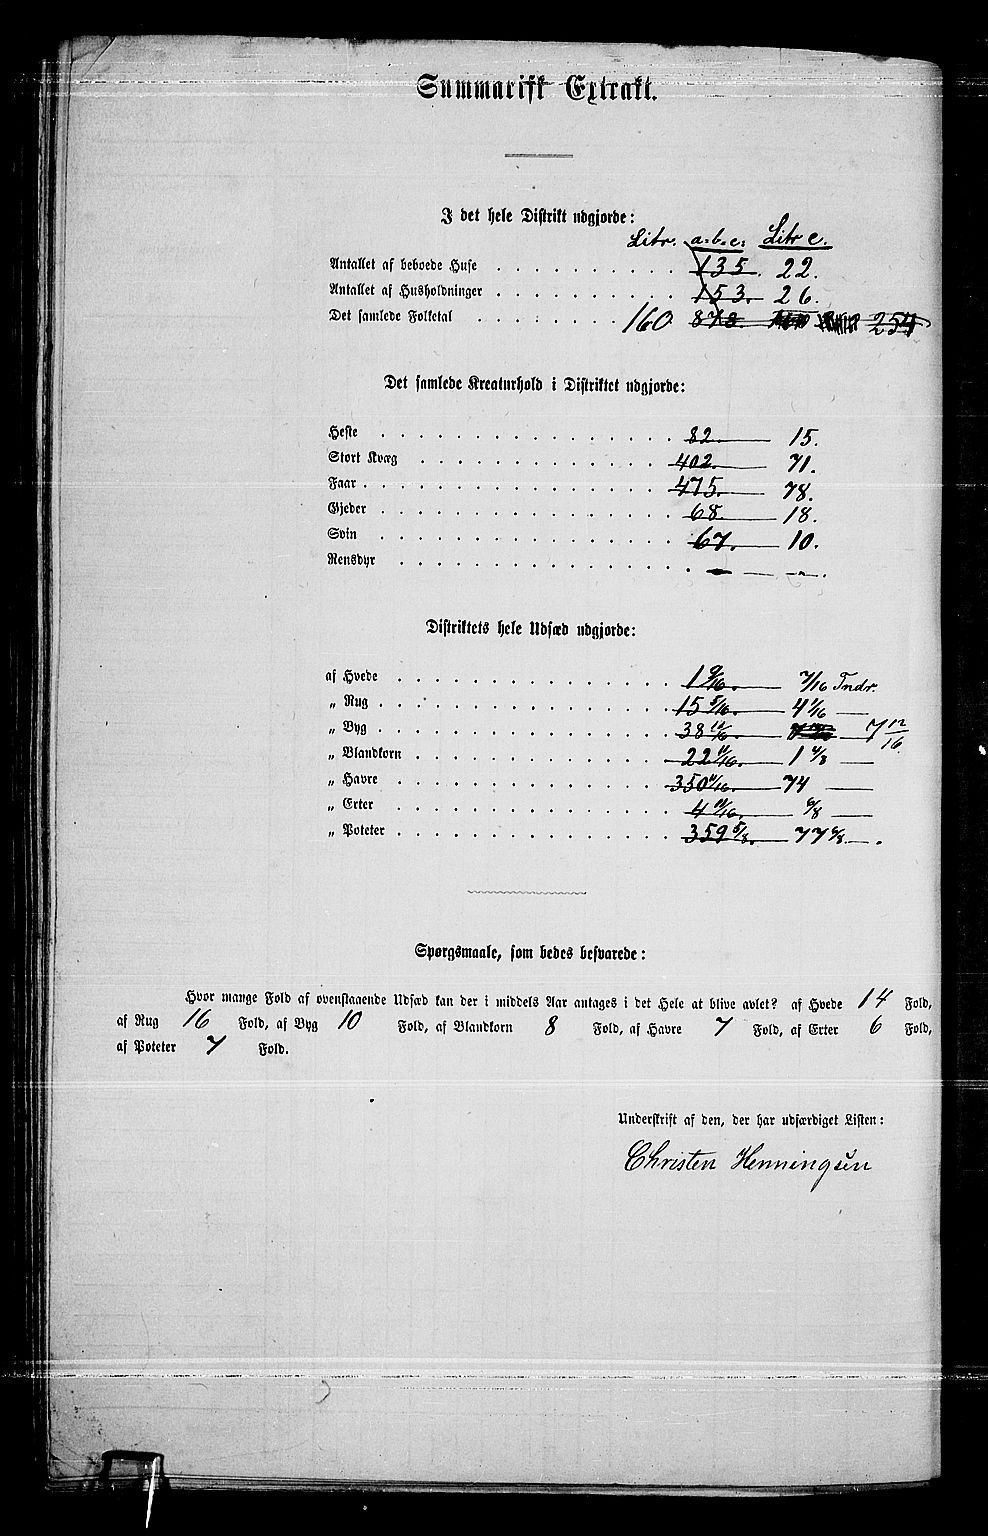 Summarisk Extrakt.
I det hele Distrikt udgjorde:
Litr. a. b. c: Litr c.
Antallet af beboede Huse 135. 22.
Antallet af Husholdninger 153. 26.
Det samlede Folketal 160 878 254
Det samlede Kreaturhold i Distriktet udgjorde:
Heste 82. 15.
Stort Kvæg 402. 71.
Faar 475. 78.
Gjeder 68. 18.
Svin 67. 10.
Rensdyr - - - .
Distriktets hele Udsæd udgjorde:
af Hvede 1 9/16. 7/16 Tndr.
„ Rug 15 5/16. 4 1/16 —
„ Byg 38 11/16 — 7 12/16.
„ Blandkorn 22 11/16. 1 4/8 —
„ Havre 350 4/16. 74 —
„ Erter 4 10/16. 6/8 —
„ Poteter 359 5/8. 77 6/8 — .
Spørgsmaale, som bedes besvarede:
Hvor mange Fold af ovenstaaende Udsæd kan der i middels Aar antages i det Hele at blive avlet? af Hvede 14 Fold,
af Rug 16 Fold, af Byg 10 Fold, af Blandkorn 8 Fold, af Havre 7 Fold, af Erter 6 Fold,
af Poteter 7 Fold.
Underskrift af den, der har udfærdiget Listen:
Christen Henningsen